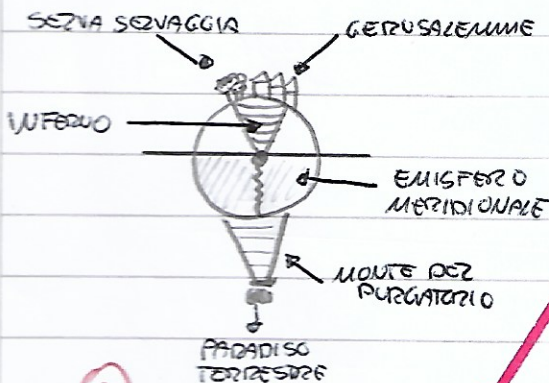 SELVA SELVAGGIA
GERUSALEMME
INFERNO
EMISFERO
MERIDIONALE
MONTE DEL
PURGATORIO
PARADISO
TERRESTRE